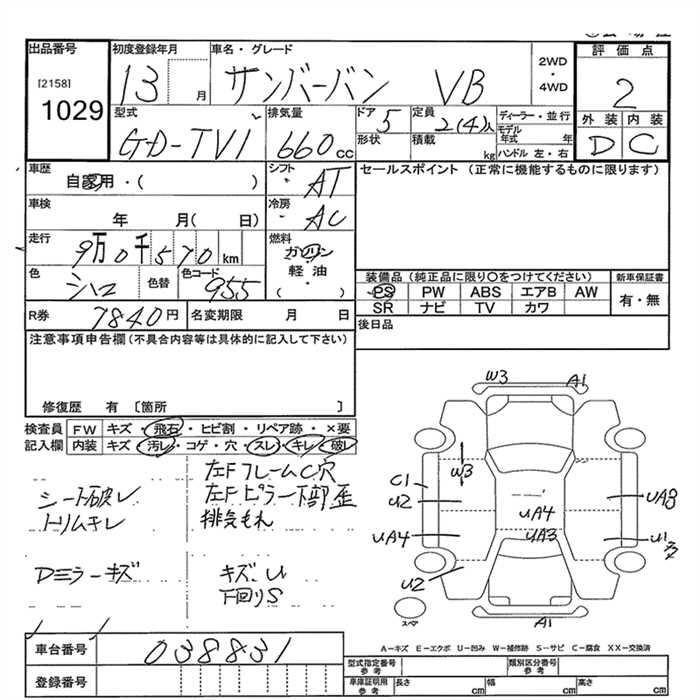 出品番号
[2158]
1029
初度登録年月
13 月
車名・グレード
サンバーバン VB
2WD
・
4WD
評価点
2
外装 内装
D C
型式
GD-TV1
排気量
660 cc
ドア
5
形状
定員
2(4)人
積載
kg
ディーラー・並行
モデル
年式
年
ハンドル 左・右
車歴
自家用・( )
シフト
AT
車検
年 月( 日)
冷房
AC
走行
9万0千570km
燃料
ガソリン
軽油・
( )
色
シロ
色替
色コード
955
R券
7840円
名変期限 月 日
セールスポイント (正常に機能するものに限ります)
装備品(純正品に限り○をつけてください)
PS PW ABS エアB AW
SR ナビ TV カワ
新車保証書
有・無
後日品
注意事項申告欄(不具合内容等は具体的に記入して下さい)
修復歴 有 〔箇所 〕
検査員
記入欄
FW キズ・飛石・ヒビ割・リペア跡・×要
内装 キズ・汚レ・コゲ・穴・スレ・キレ・破レ
シート破レ
トリムキレ
Dミラーキズ
左FフレームC穴
左Fピラー下部歪
排気もれ
キズ、U
下回りS
W3
A1
W3
C1
U2
UA4
U2
UA4
UA3
UA3
U1
A1
スペア
A-キズ E-エクボ U-凹み W-補修跡 S-サビ C-腐食 XX-交換済
車台番号
038831
登録番号
型式指定番号
参考
類別区分番号
参考
車庫証明用
参考
長さ cm
幅 cm
高さ cm